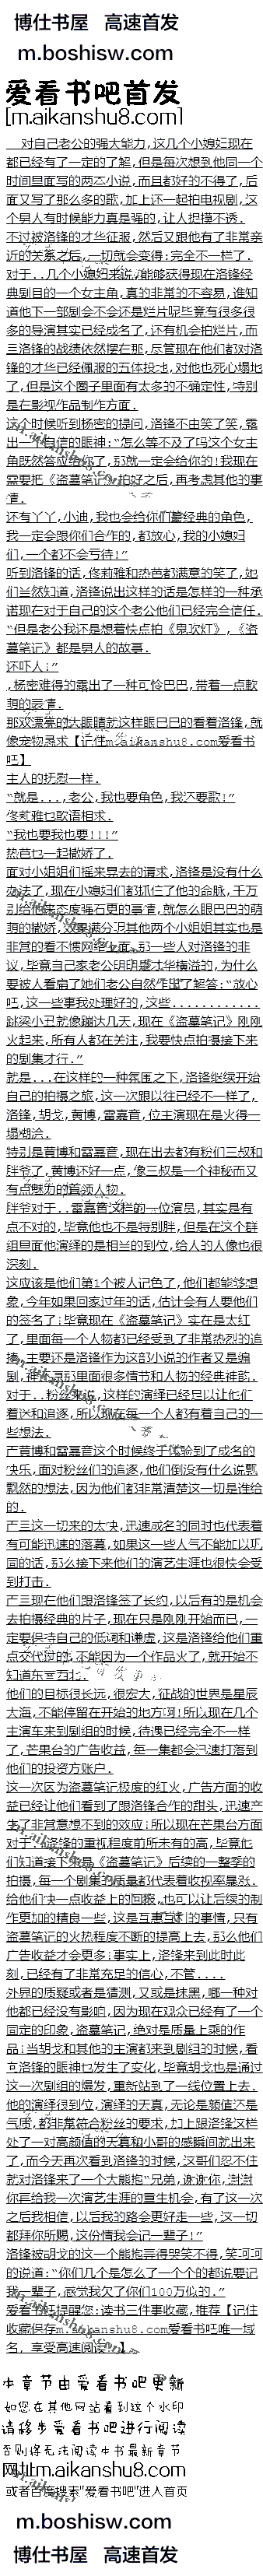 博仕书屋 高速首发
m.boshisw.com
爱看书吧首发
[m.aikanshu8.com]
对自己老公的强大能力,这几个小媳妇现在
都已经有了一定的了解,但是每次想到他同一个
时间里面写的两本小说,而且都好的不得了,后
面又写了那么多的歌,加上还一起拍电视剧,这
个男人有时候能力真是强的,让人捉摸不透.
不过被洛锋的才华征服,然后又跟他有了非常亲
近的关系之后,一切就会变得;完全不一样了.
对于..几个小媳妇来说,能够获得现在洛锋经
典剧目的一个女主角,真的非常的不容易,谁知
道他下一部剧会不会还是烂片呢毕竟有很多很
多的导演其实已经成名了,还有机会拍烂片,而
三洛锋的战绩依然摆在那,尽管现在他们都对洛
锋的才华已经佩服的五体投地,对他也死心塌地
了,但是这个圈子里面有太多的不确定性,特别
是在影视作品制作方面.
这个时候听到杨密的提问,洛锋不由笑了笑,露
出一个自信的眼神:“怎么等不及了吗这个女主
角既然答应给你了,那就一定会给你的!我现在
需要把《盗墓笔记》拍好之后,再考虑其他的事
情.
还有丫丫,小迪,我也会给你们最经典的角色,
我一定会跟你们合作的,都放心,我的小媳妇
们,一个都不会亏待!”
听到洛锋的话,佟莉雅和热芭都满意的笑了,她
们当然知道,洛锋说出这样的话是怎样的一种承
诺现在对于自己的这个老公他们已经完全信任.
“但是老公我还是想着快点拍《鬼吹灯》,《盗
墓笔记》都是男人的故事.
还吓人;”
,杨密难得的露出了一种可怜巴巴,带着一点软
萌的表情.
那双漂亮的大眼睛就这样眼巴巴的看着洛锋,就
像宠物恳求【记住m.aikanshu8.com爱看书
吧】
主人的抚慰一样.
“就是...,老公,我也要角色,我还要歌!”
佟莉雅也软语相求.
“我也要我也要!!!”
热芭也一起撒娇了.
面对小姐姐们摇来晃去的请求,洛锋是没有什么
办法了,现在小媳妇们都抓住了他的命脉,千万
别给他谈态度强石更的事情,就怎么眼巴巴的萌
萌的撒娇,效果满分叽其他两个小姐姐其实也是
非常的看不惯网络上面,那一些人对洛锋的非
议,毕竟自己家老公明明是才华横溢的,为什么
要被人看扁了她们老公自然作出了解答:“放心
吧,这一些事我处理好的,这些............
跳梁小丑就像蹦达几天,现在《盗墓笔记》刚刚
火起来,所有人都在关注,我要快点拍摄接下来
的剧集才行.”
就是...在这样的一种氛围之下,洛锋继续开始
自己的拍摄之旅,这一次跟以往已经不一样了,
洛锋,胡戈,黄博,雷嘉音,位主演现在是火得一
塌糊涂.
特别是黄博和雷嘉音,现在出去都有粉们三叔和
胖爷了,黄博还好一点,像三叔是一个神秘而又
有点魅力的首领人物.
胖爷对于..雷嘉音这样的一位演员,其实是有
点不对的,毕竟他也不是特别胖,但是在这个群
组里面他演绎的是相当的到位,给人的人像也很
深刻.
这应该是他们第1个被人记色了,他们都能够想
象,今年如果回家过年的话,估计会有人要他们
的签名了;毕竟现在《盗墓笔记》实在是太红
了,里面每一个人物都已经受到了非常热烈的追
捧,主要还是洛锋作为这部小说的作者又是编
剧,把握部里面很多情节和人物的经典神韵.
对于..粉丝来说,这样的演绎已经足以让他们
着迷和追逐,所以现在每一个人都有着自己的一
些想法.
严黄博和雷嘉音这个时候终于体验到了成名的
快乐,面对粉丝们的追逐,他们倒没有什么说飘
飘然的想法,因为他们都非常清楚这一切是谁给
的.
严三这一切来的太快,迅速成名的同时也代表着
有可能迅速的落幕,如果这一些人气不能加以巩
固的话,那么接下来他们的演艺生涯也很快会受
到打击.
严三现在他们跟洛锋签了长约,以后有的是机会
去拍摄经典的片子,现在只是刚刚开始而已,一
定要保持自己的低词和谦虚,这是洛锋给他们重
点交代过的,不能因为一个作品火了,就开始不
知道东南西北.
他们的目标很长远,很宏大,征战的世界是星辰
大海,不能停留在开始的地方啊!所以现在几个
主演车来到剧组的时候,待遇已经完全不一样
了,芒果台的广告收益,每一集都会迅速打落到
他们的投资方账户.
这一次因为盗墓笔记极度的红火,广告方面的收
益已经让他们看到了跟洛锋合作的甜头,迅速产
生了非常意想不到的效应;所以现在芒果台方面
对于..洛锋的重视程度前所未有的高,毕竟他
们知道接下来是《盗墓笔记》后续的一整季的
拍摄,每一个剧集的质量都代表着收视率暴涨.
给他们快一点收益上的回报,也可以让后续的制
作更加的精良一些,这是互惠互利的事情,只有
盗墓笔记的火热程度不断的提高上去,那么他们
广告收益才会更多;事实上,洛锋来到此时此
刻,已经有了非常充足的信心,不管....
外界的质疑或者是猜测,又或是抹黑,哪一种对
他都已经没有影响,因为现在观众已经有了一个
固定的印象,盗墓笔记,绝对是质量上乘的作
品;当胡戈和其他的主演都来到剧组的时候,看
向洛锋的眼神也发生了变化,毕竟胡戈也是通过
这一次剧组的爆发,重新站到了一线位置上去.
他的演绎很到位,演绎的天真,无论是颜值还是
气质,都非常符合粉丝的要求,加上跟洛锋这样
处了一对高颜值的天真和小哥的感瞬间就出来
了,而今天再次看到洛锋的时候,这哥们忍不住
就对洛锋来了一个大熊抱“兄弟,谢谢你,谢谢
你再给我一次演艺生涯的重生机会,有了这一次
之后我相信,以后我的路会更好走一些,这一切
都拜你所赐,这份情我会记一辈子!”
洛锋被胡戈的这一个熊抱弄得哭笑不得,笑呵呵
的说道:“你们几个是怎么了一个个的都说要记
我一辈子,感觉我欠了你们100万似的.”
爱看书吧提醒您:读书三件事收藏,推荐【记住
收藏保存m.aikanshu8.com爱看书吧唯一域
名,享受高速阅读。】
本章节由爱看书吧更新
如您在其他网站看到这个水印
请移步爱看书吧进行阅读
否则将无法阅读本书最新章节
网址m.aikanshu8.com
或者百度搜索"爱看书吧"进入首页
m.boshisw.com
博仕书屋 高速首发